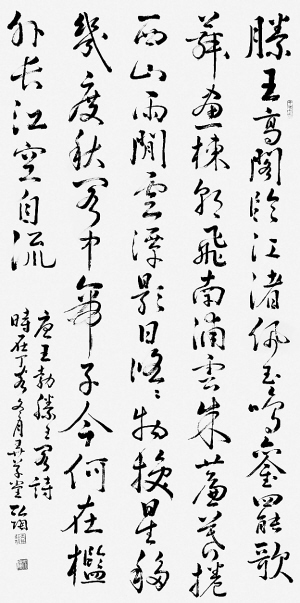 滕王高閣臨江渚佩玉鳴鑾罷歌
舞畫棟朝飛南浦雲朱簾暮捲
西山雨閒雲潭影日悠〻物換星移
幾度秋閣中帝子今何在檻
外長江空自流
唐王勃滕王閣詩
時在丁 冬月 草堂